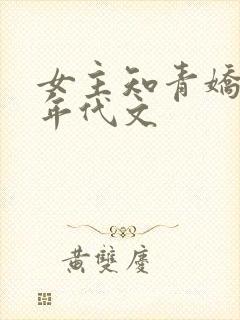 女主知青嬌
年代文
黃雙慶